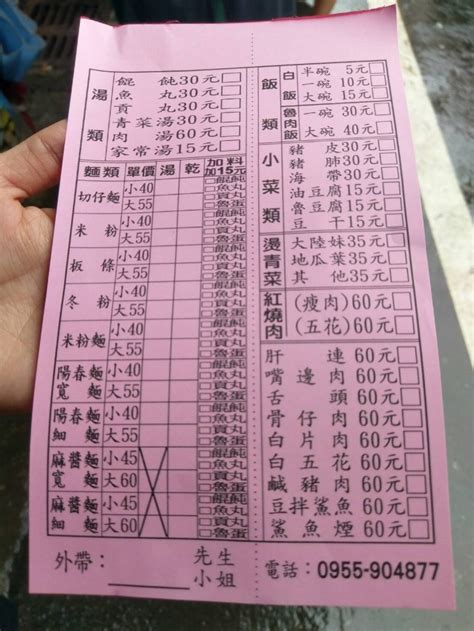 湯類
餛飩30元□
魚丸30元□
貢丸30元□
青菜湯30元□
肉湯60元□
家常湯15元□
麵類 單價 湯 乾 加料加15元
切仔麵 小40 大55 □餛飩 □魚丸 □貢丸 □魯蛋
米粉 小40 大55 □餛飩 □魚丸 □貢丸 □魯蛋
板條 小40 大55 □餛飩 □魚丸 □貢丸 □魯蛋
冬粉 小40 大55 □餛飩 □魚丸 □貢丸 □魯蛋
米粉麵 小40 大55 □餛飩 □魚丸 □貢丸 □魯蛋
陽春麵 寬麵 小40 大55 □餛飩 □魚丸 □貢丸 □魯蛋
陽春麵 細麵 小40 大55 □餛飩 □魚丸 □貢丸 □魯蛋
麻醬麵 寬麵 小45 大60 □餛飩 □魚丸 □貢丸 □魯蛋
麻醬麵 細麵 小45 大60 □餛飩 □魚丸 □貢丸 □魯蛋
外帶：
先生
小姐
飯類
白飯 半碗 5元□
一碗 10元□
大碗 15元□
魯肉飯 一碗 30元□
大碗 40元□
小菜類
豬皮30元□
豬肺30元□
海帶30元□
油豆腐15元□
魯豆腐15元□
豆干15元□
燙青菜
大陸妹35元□
地瓜葉35元□
其他35元□
紅燒肉
(瘦肉)60元□
(五花)60元□
肝連 60元□
嘴邊肉 60元□
舌頭 60元□
骨仔肉 60元□
白片肉 60元□
白五花 60元□
鹹豬肉 60元□
豆拌鯊魚 60元□
鯊魚煙 60元□
電話：0955-904877